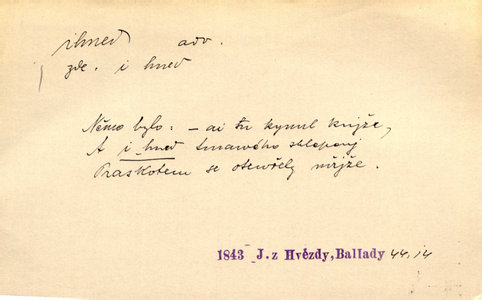 ihned adv.
zde. i hned
Němo bylo: – ai tu kynul kníže,
A i hned tmawého sklepení
Praskotem se otewřely mříže.
1843 J. z Hvězdy, Ballady 44,14